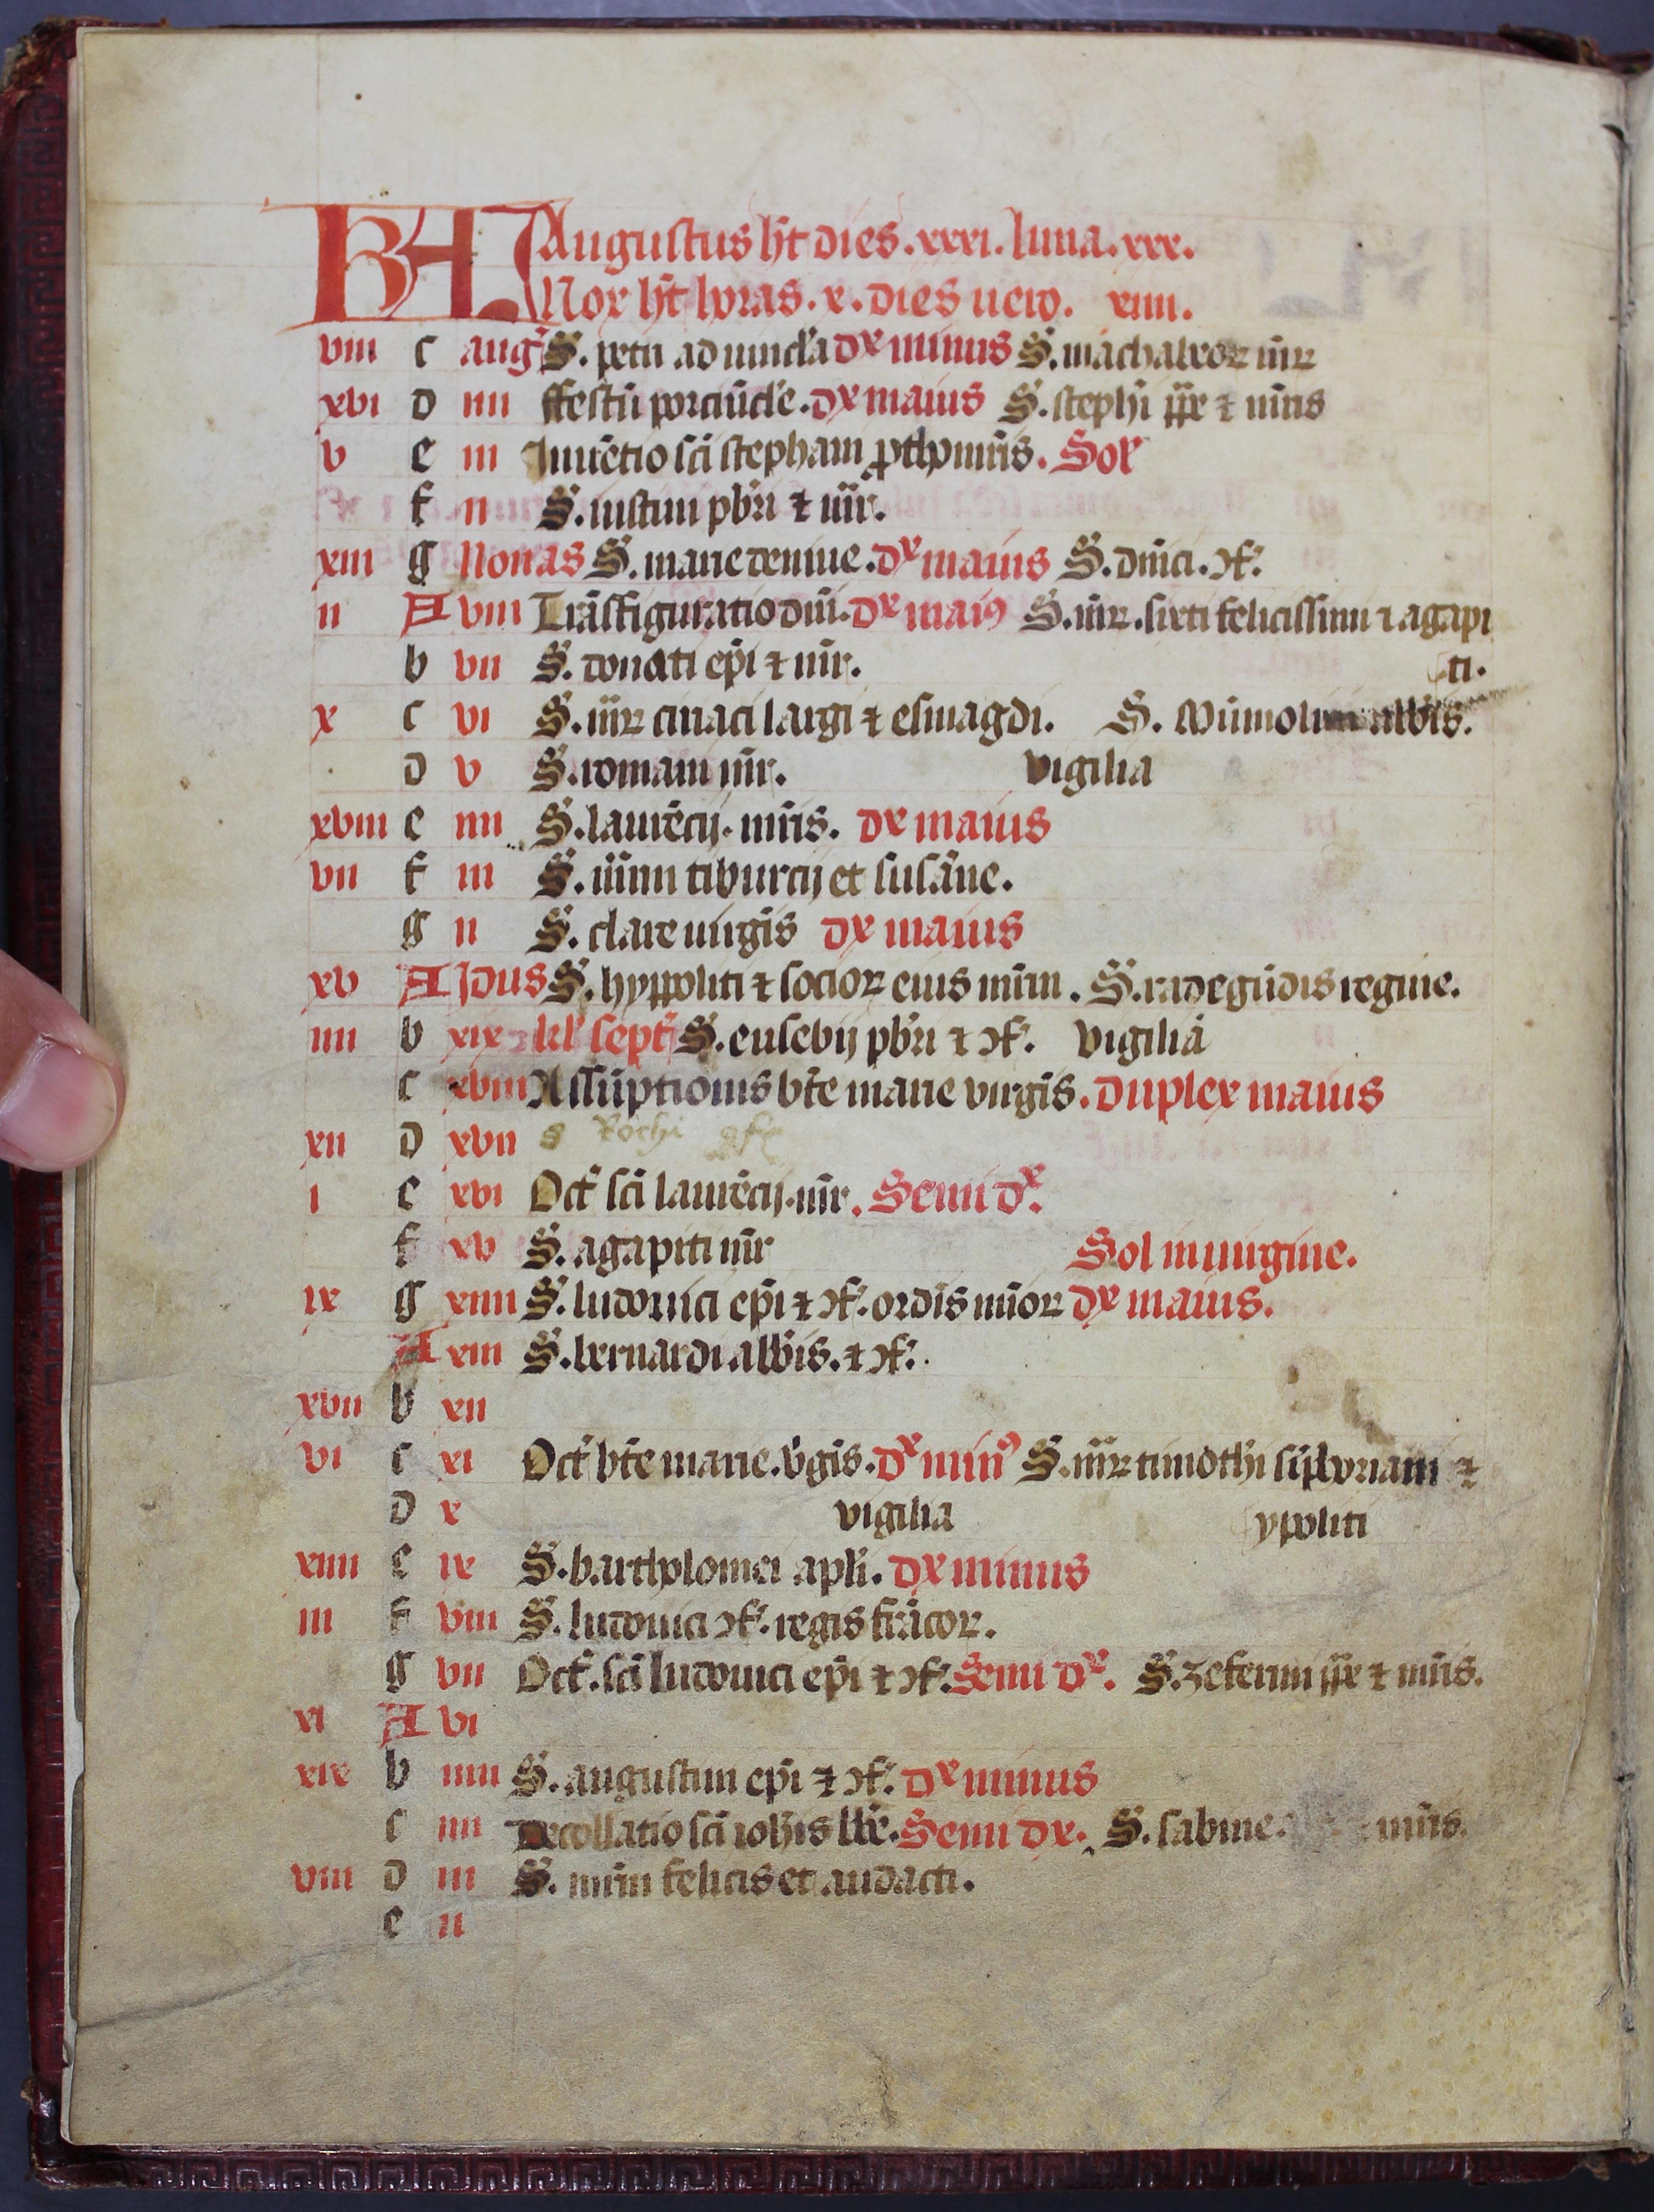 KL Augustus ht dies .xxxi. luna .xxx.
Nox ht horas .x. dies uero. xiiii.
viii c aug S. petri ad uincla dx minus S. machabeoꝝ mr̄ꝝ
xvi d iiii ffestū porciūcle. dx maius S. stephi pp̄e ⁊ mr̄is
v e iii Inuētio sci stephani ꝓthomr̄is. Sol
f ii S. iustini pbri ⁊ mr̄.
xiii g Nonas S. marie de niue. dx maius S. dnici. ɔf.
ii A viii Trāsfiguratio dni. dx maiꝰ S. mr̄ꝝ. sixti felicissimi ⁊ agapi
b vii S. donati epi ⁊ mr̄. ti.
x c vi S. mr̄ꝝ ciriaci largi ⁊ esmagdi. S. Mūmolini abbis.
d v S. romani mr̄. vigilia
xviii e iiii S. laurēcij. mr̄is. dx maius
vii f iii S. mr̄um tiburcij et susāne.
g ii S. clare uirgis dx maius
xv A Idus S. hyppoliti ⁊ socioꝝ eius mr̄um. S. radegūdis regine.
iiii b xix kl' sept' S. eusebij pbri ⁊ ɔf. vigilia
c xviii Assūptionis bte marie virgis. duplex maius
xii d xvii S Rochi ɔf
i e xvi Oct' sci laurēcij. mr̄. Semi dx.
f xv S. agapiti mr̄ Sol in uirgine.
ix g xiiii S. ludouici epi ⁊ ɔf. ordis mīoꝝ dx maius.
A xiii S. bernardi abbis. ⁊ ɔf.
xvii b xii
vi c xi Oct' bte marie. v̄gis. dx minꝰ S. mr̄ꝝ timothi siphoriani ⁊
d x vigilia ypoliti
xiiii e ix S. bartholomei apli. dx minus
iii f viii S. ludouici ɔf. regis frācoꝝ.
g vii Oct'. sci ludouici epi ⁊ ɔf. Semi dx. S. zeferini pp̄e ⁊ mr̄is.
xi A vi
xix b iiiii S. augustini epi ⁊ ɔf. dx minus
c iiii Decollatio sci iohis bte. Semi dx. S. sabine. mr̄is.
viii d iii S. mr̄um felicis et audacti.
e ii